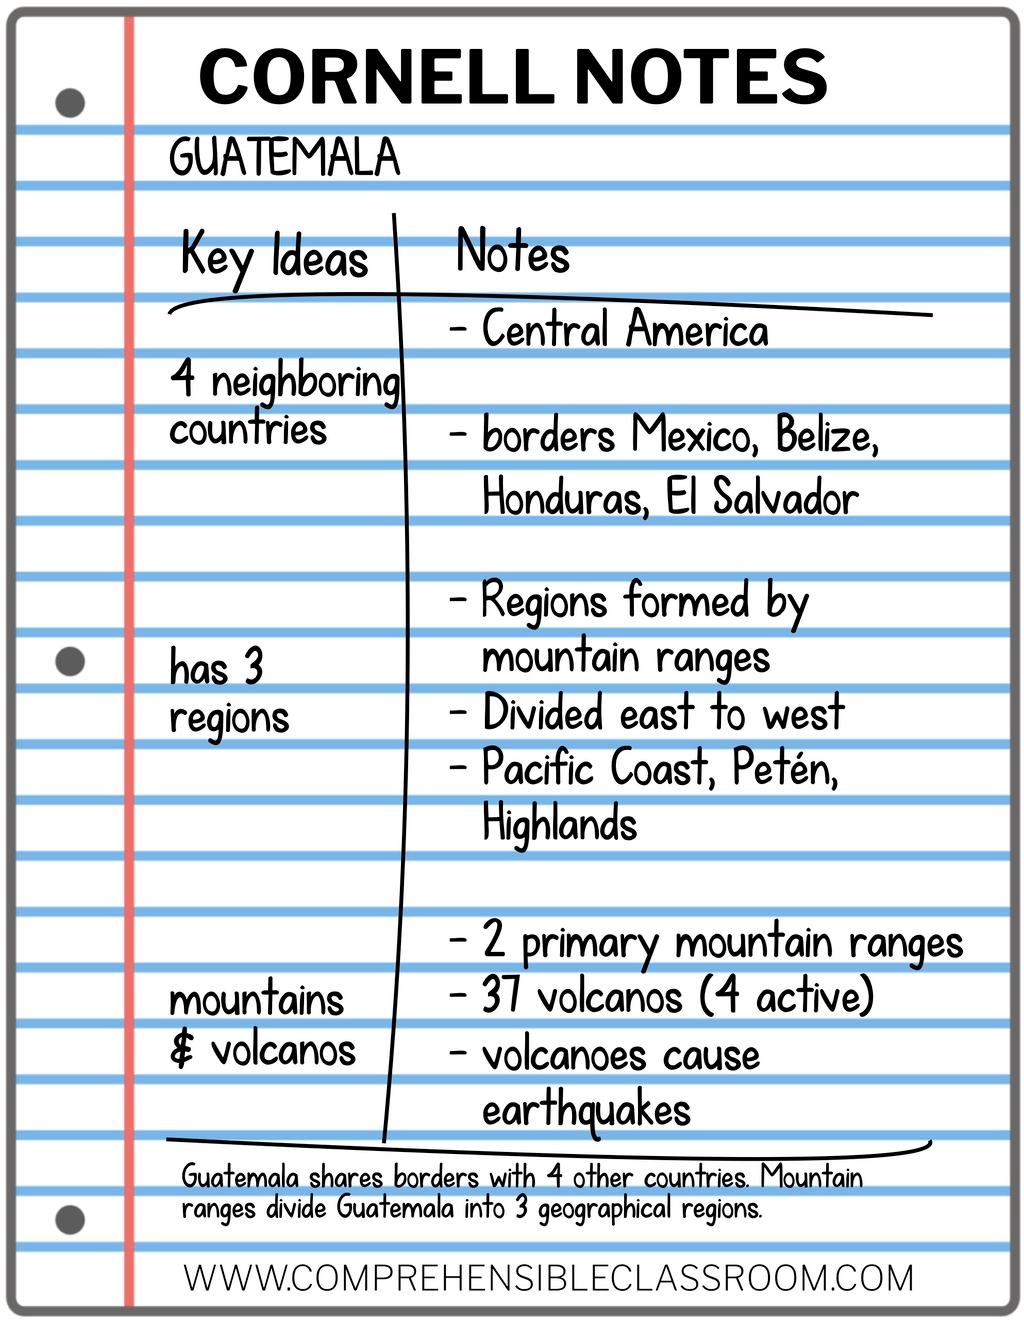 CORNELL NOTES
GUATEMALA
Key Ideas
Notes
- Central America
4 neighboring
countries
- borders Mexico, Belize,
Honduras, El Salvador
- Regions formed by
mountain ranges
has 3
regions
- Divided east to west
- Pacific Coast, Petén,
Highlands
- 2 primary mountain ranges
mountains
& volcanos
- 37 volcanos (4 active)
- volcanoes cause
earthquakes
Guatemala shares borders with 4 other countries. Mountain
ranges divide Guatemala into 3 geographical regions.
WWW.COMPREHENSIBLECLASSROOM.COM